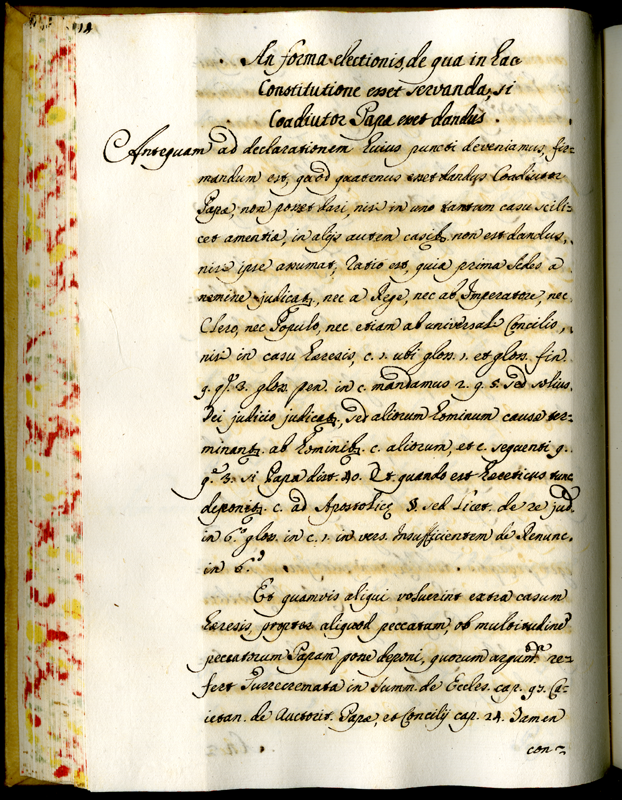 An forma electionis, de qua in hac
Constitutione esset servanda, si
Coadiutor Papæ esset dandus.
Antequam ad declarationem huius puncti deveniamus, fir=
mandum est, quod quatenus esset dandus Coadiutor
Papæ, non posset dari, nisi in uno tantum casu scili=
cet amentiæ, in alijs autem casib. non est dandus,
nisi ipse assumat, Ratio est, quia prima Sedes a
nemine judicat., nec a Rege, nec ab Imperatore, nec
Clero, nec Populo, nec etiam ab universali Concilio,
nisi in casu hæresis, c. 1. ubi gloss. 1. et gloss. fin
9. q. 3. gloss. pen. in c. mandamus 2. q. 5. sed solius
Dei judicio judicat., sed aliorum hominum causæ ter=
minant. ab hominib. c. aliorum, et c. sequenti 9.
q. 3. si Papa dist. 40. Et quando est hæreticus tunc
deponit. c. ad Apostolicæ §. sed licet. de re jud.
in 6.º gloss. in c. 1. in vers. Insufficientem de Renunc.
in 6.º
Et quamvis aliqui voluerint extra casum
hæresis, propter aliquod peccatum, ob multitudine
peccatorum Papam posse deponi, quorum argum.ta re=
fert Turrecremata in Summ. de Eccles. cap. Ca=
ietan. de Auctorit. Papæ, et Concilij cap. 24. Tamen
con=